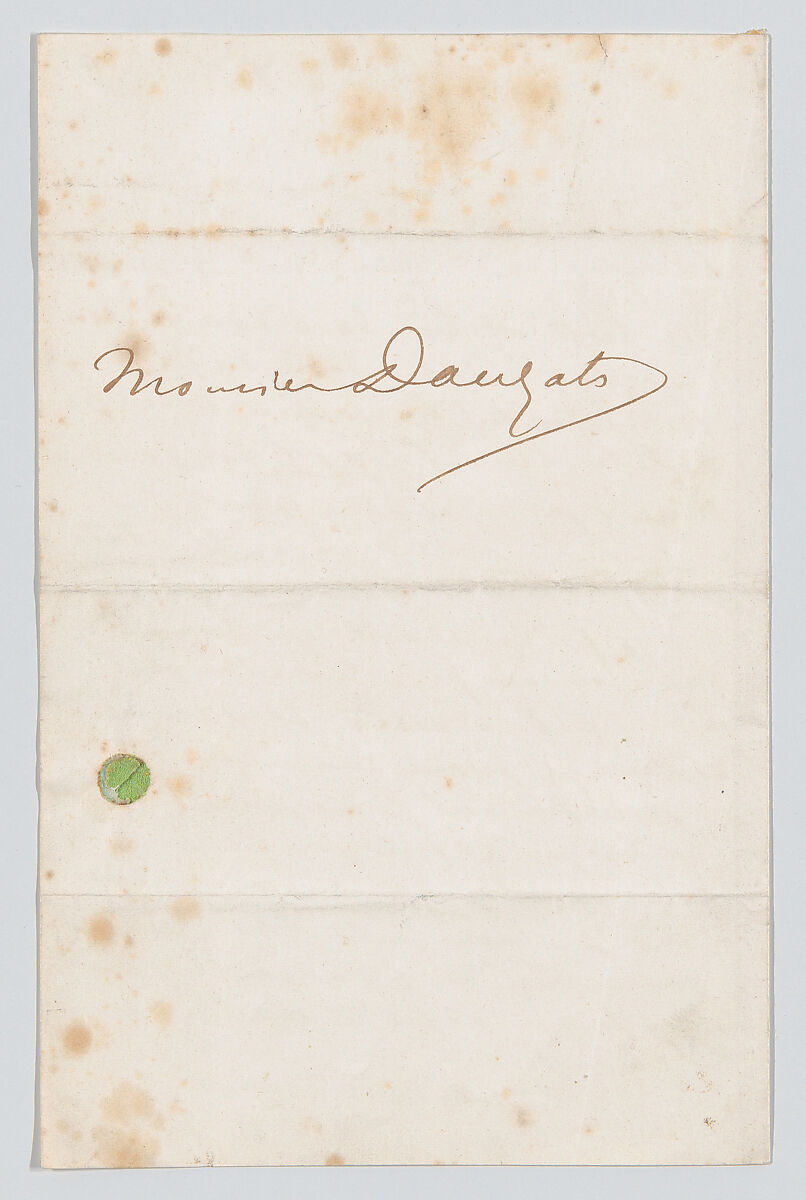 Monsieur Dauzats